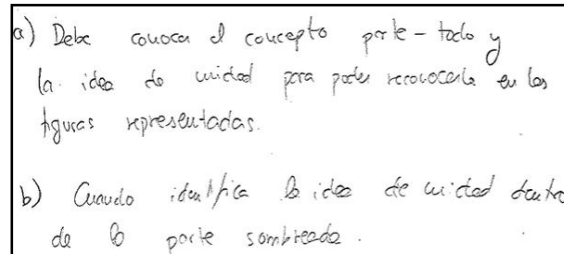 a) Debe conocer el concepto parte-todo y
la idea de unidad para poder reconocerla en las
figuras representadas.
b) Cuando identifica la idea de unidad dentro
de la parte sombreada.